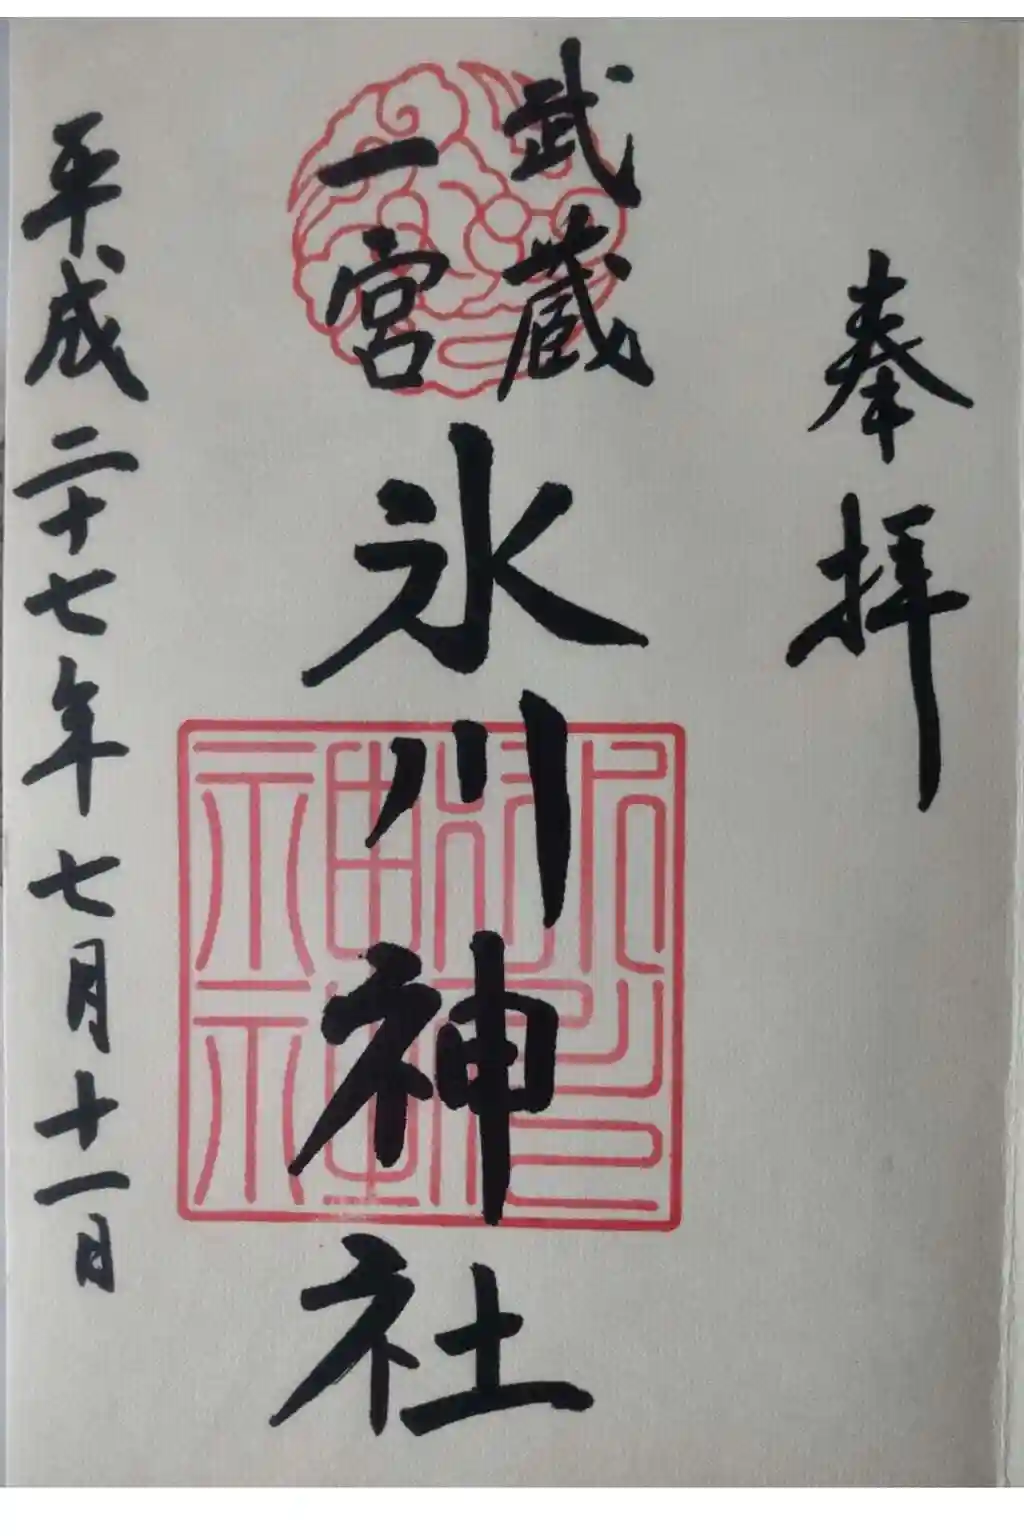 奉拝
武蔵
一宮
氷川神社
平成二十七年七月十一日
氷川神社